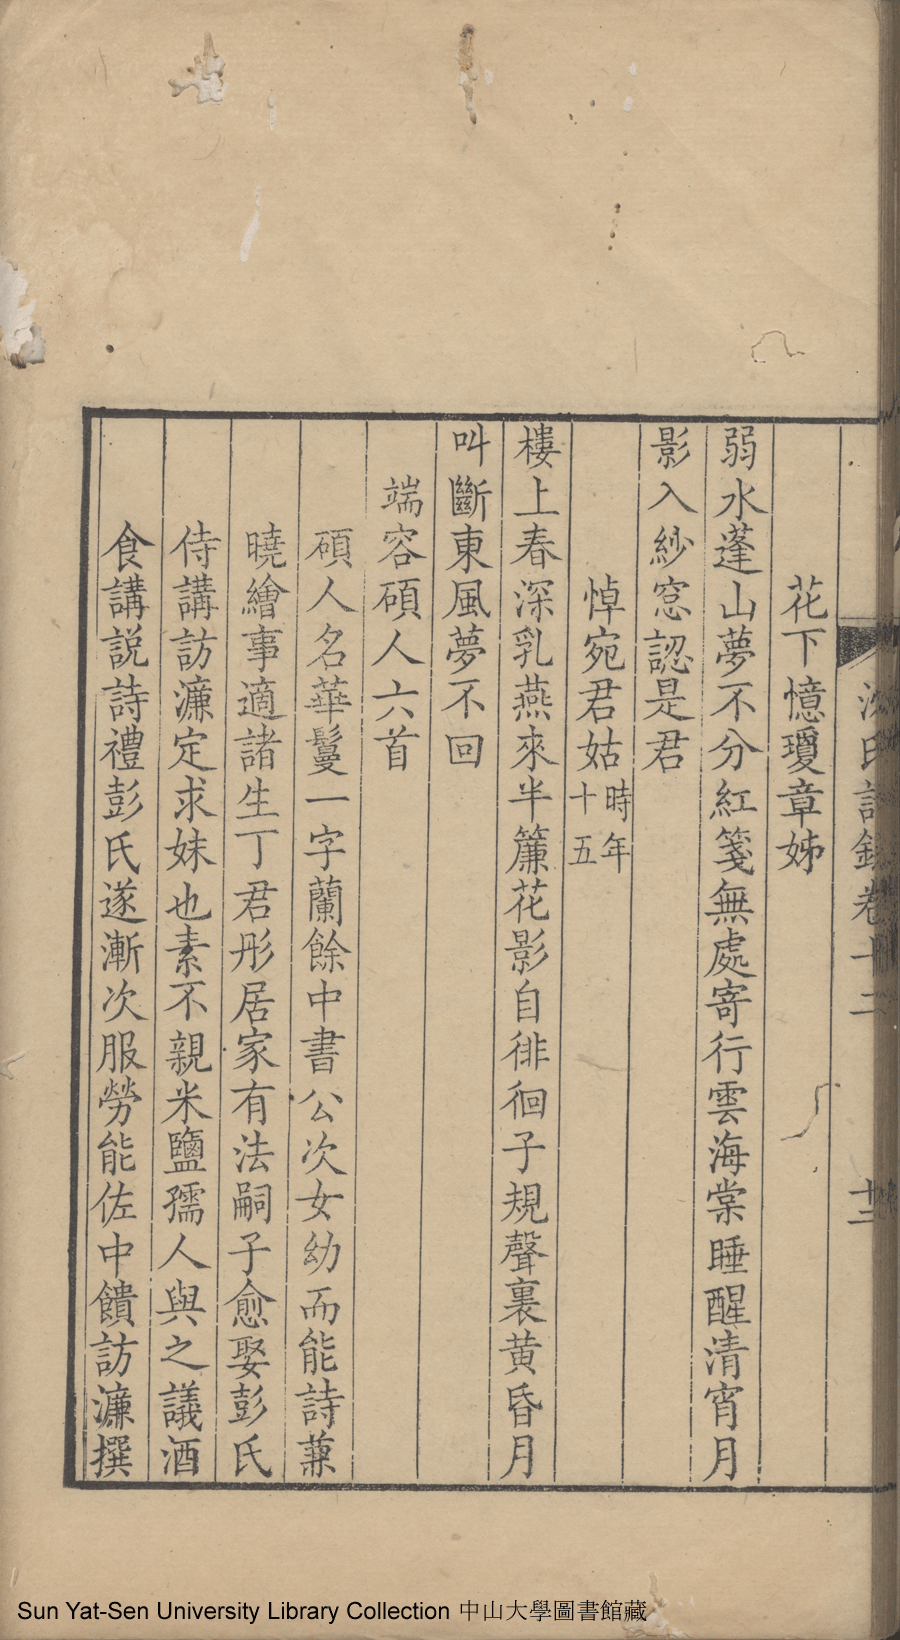 花下憶瓊章姊
弱水蓬山夢不分紅箋無處寄行雲海棠睡醒清宵月
影入紗窓認是君
悼宛君姑時年十五
樓上春深乳燕來半簾花影自徘徊子規聲裏黄昏月
叫斷東風夢不回
端容碩人六首
碩人名華鬘一字蘭餘中書公次女幼而能詩蒹
曉繪事適諸生丁君彤居家有法嗣子愈娶彭氏
侍講訪濂定求妹也素不親米鹽孺人與之議酒
食講説詩禮彭氏遂漸次服勞能佐中饋訪濂撰
氏詩錄卷十二
十三
Sun Yat-Sen University Library Collection 中山大學圖書館藏